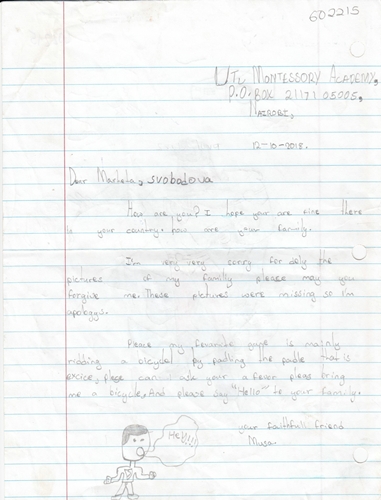 602215
UTU MONTESSORY ACADEMY,
P.O. BOX 21171 05005,
NAIROBI,
12-10-2018.
Dear Marketa, svobodova
How are you? I hope your are fine there
in your country. how are your family.
I'm very very sorry for doly the
pictures of my familly please may you
forgive me. These pictures were missing so I'm
apologys.
Pleace my favorite game is mainly
ridding a bicycel by padling the padle that is
exice, plece can I ask your a fever pleas bring
me a bicycle. And please say "Hello" to your family.
your faithfull friend
Musa
Hey!!!!